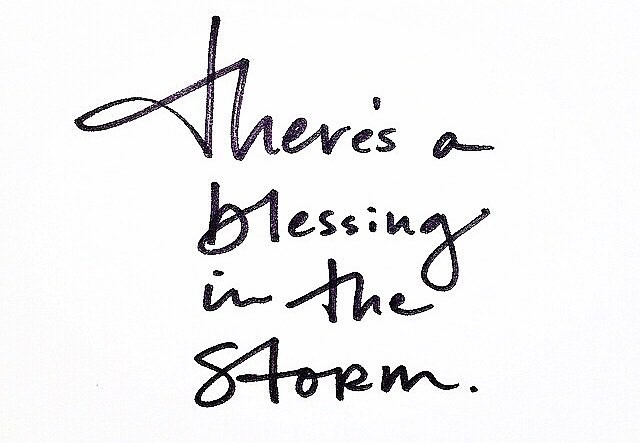 there's a
blessing
in the
storm.